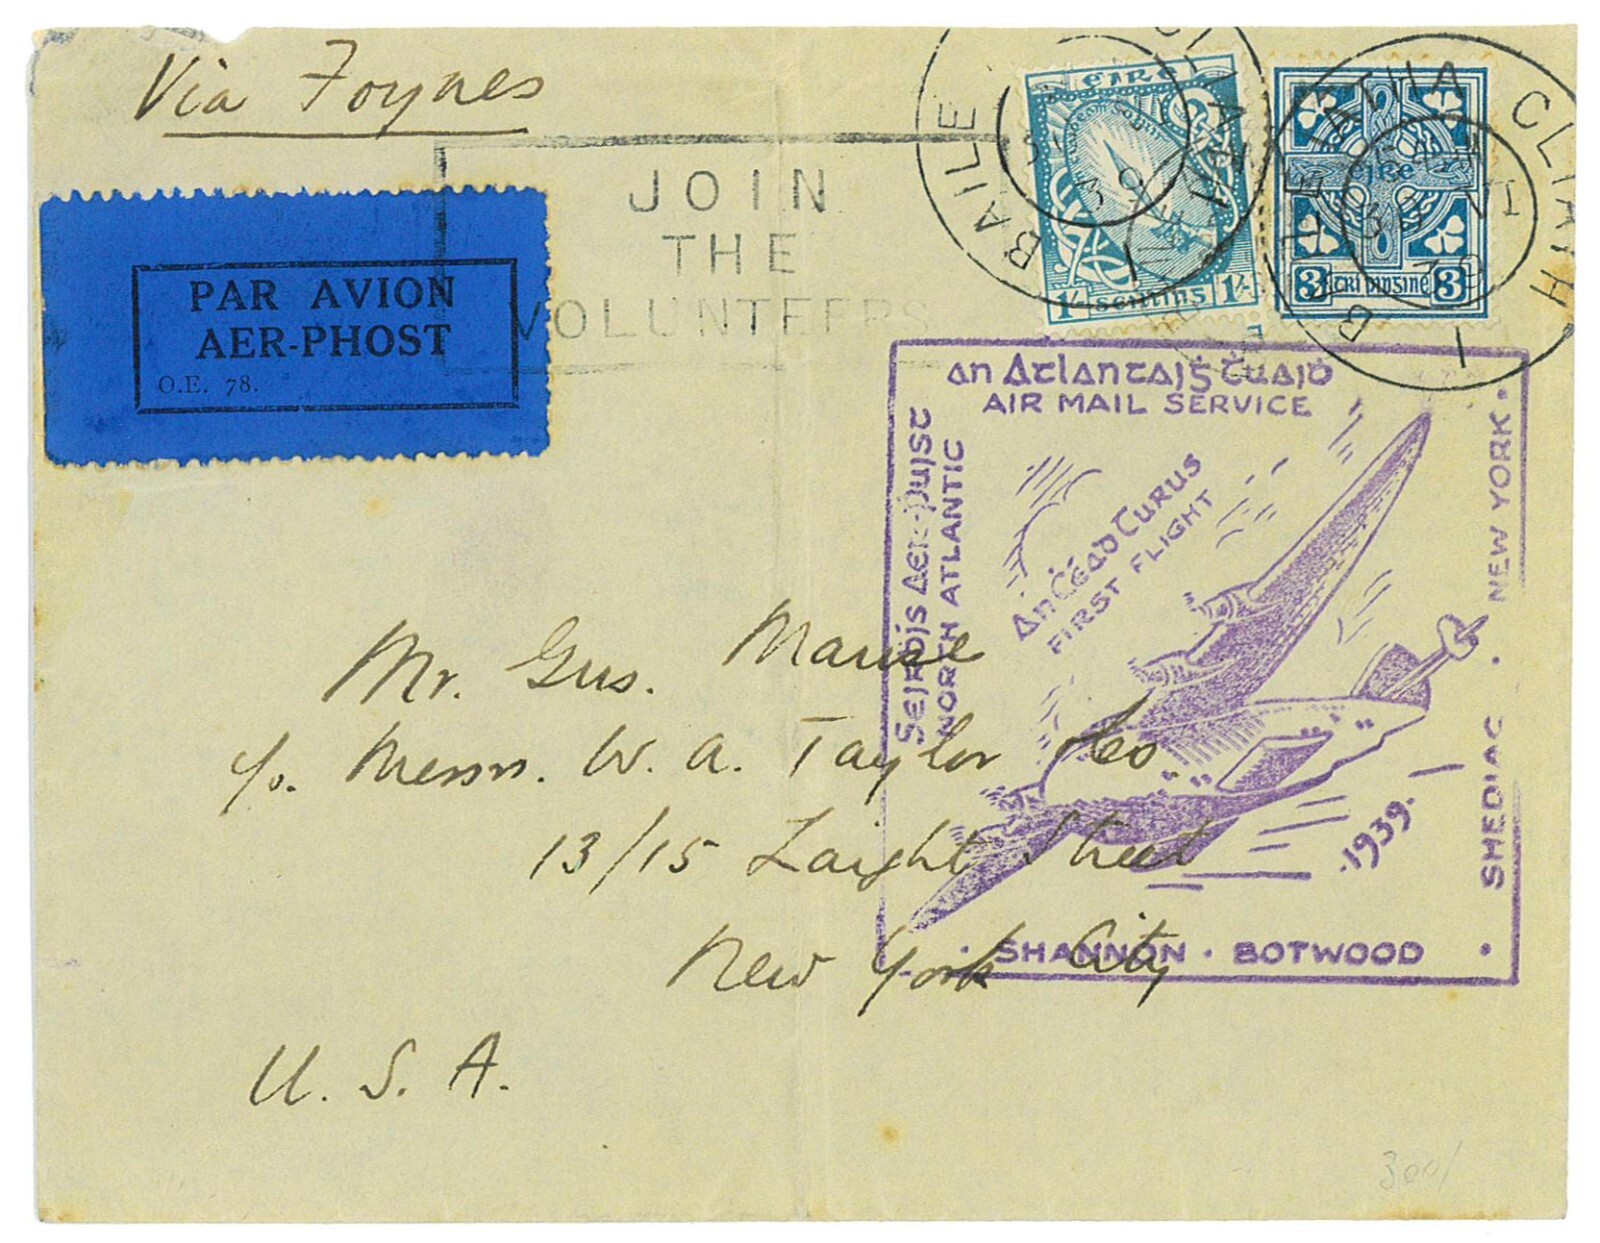 Via Foynes
JOIN
THE
VOLUNTEERS
PAR AVION
AER-PHOST
O.E. 78.
BAILE ÁTHA CLIATH
éire
1/- scilling 1/-
BAILE ATHA CLIATH
éire
3 trí pingine 3
An Atlantaiġ Ṫuaiḋ
AIR MAIL SERVICE
Seirḃís Aer-Ṗuist
NORTH ATLANTIC
An Ċéad Turus
FIRST FLIGHT
NEW YORK ·
SHEDIAC ·
1939.
· SHANNON · BOTWOOD ·
Mr. Gus.
c/o. Messrs. W. A. Taylor & Co.
13/15 Laight Street
New York City
U. S. A.
300/